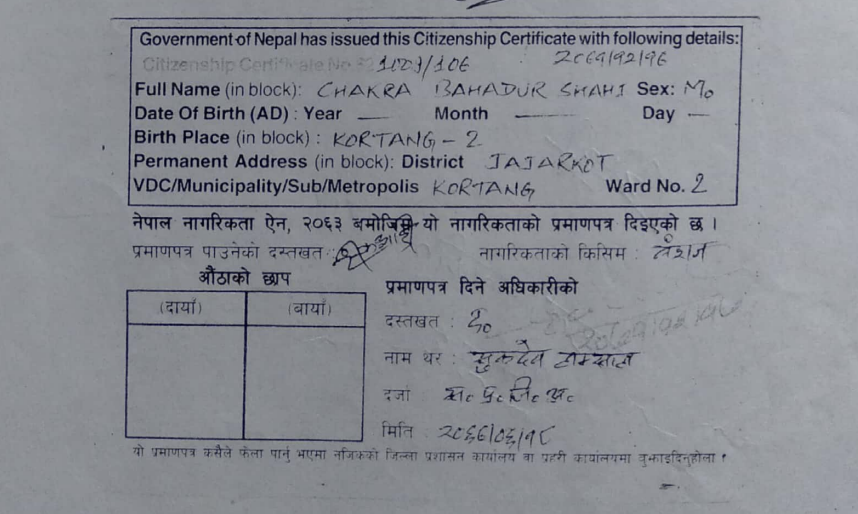 Government of Nepal has issued this Citizenship Certificate with following details:
Citizenship Certificate No. 1023/106 2069/12/16
Full Name (in block): CHAKRA BAHADUR SHAHI Sex: M.
Date Of Birth (AD) : Year — Month — Day —
Birth Place (in block) : KORTANG - 2
Permanent Address (in block): District JAJARKOT
VDC/Municipality/Sub/Metropolis KORTANG Ward No. 2
नेपाल नागरिकता ऐन, २०६३ बमोजिम यो नागरिकताको प्रमाणपत्र दिइएको छ ।
प्रमाणपत्र पाउनेको दस्तखत : नागरिकताको किसिम : वंशज
औंठाको छाप
प्रमाणपत्र दिने अधिकारीको
(दायाँ) (बायाँ)
दस्तखत :
नाम थर : सुकदेव
दर्जा
मिति २०६६/०६/१८
यो प्रमाणपत्र कसैले फेला पार्नु भएमा नजिकको जिल्ला प्रशासन कार्यालय वा प्रहरी कार्यालयमा बुझाइदिनुहोला ।